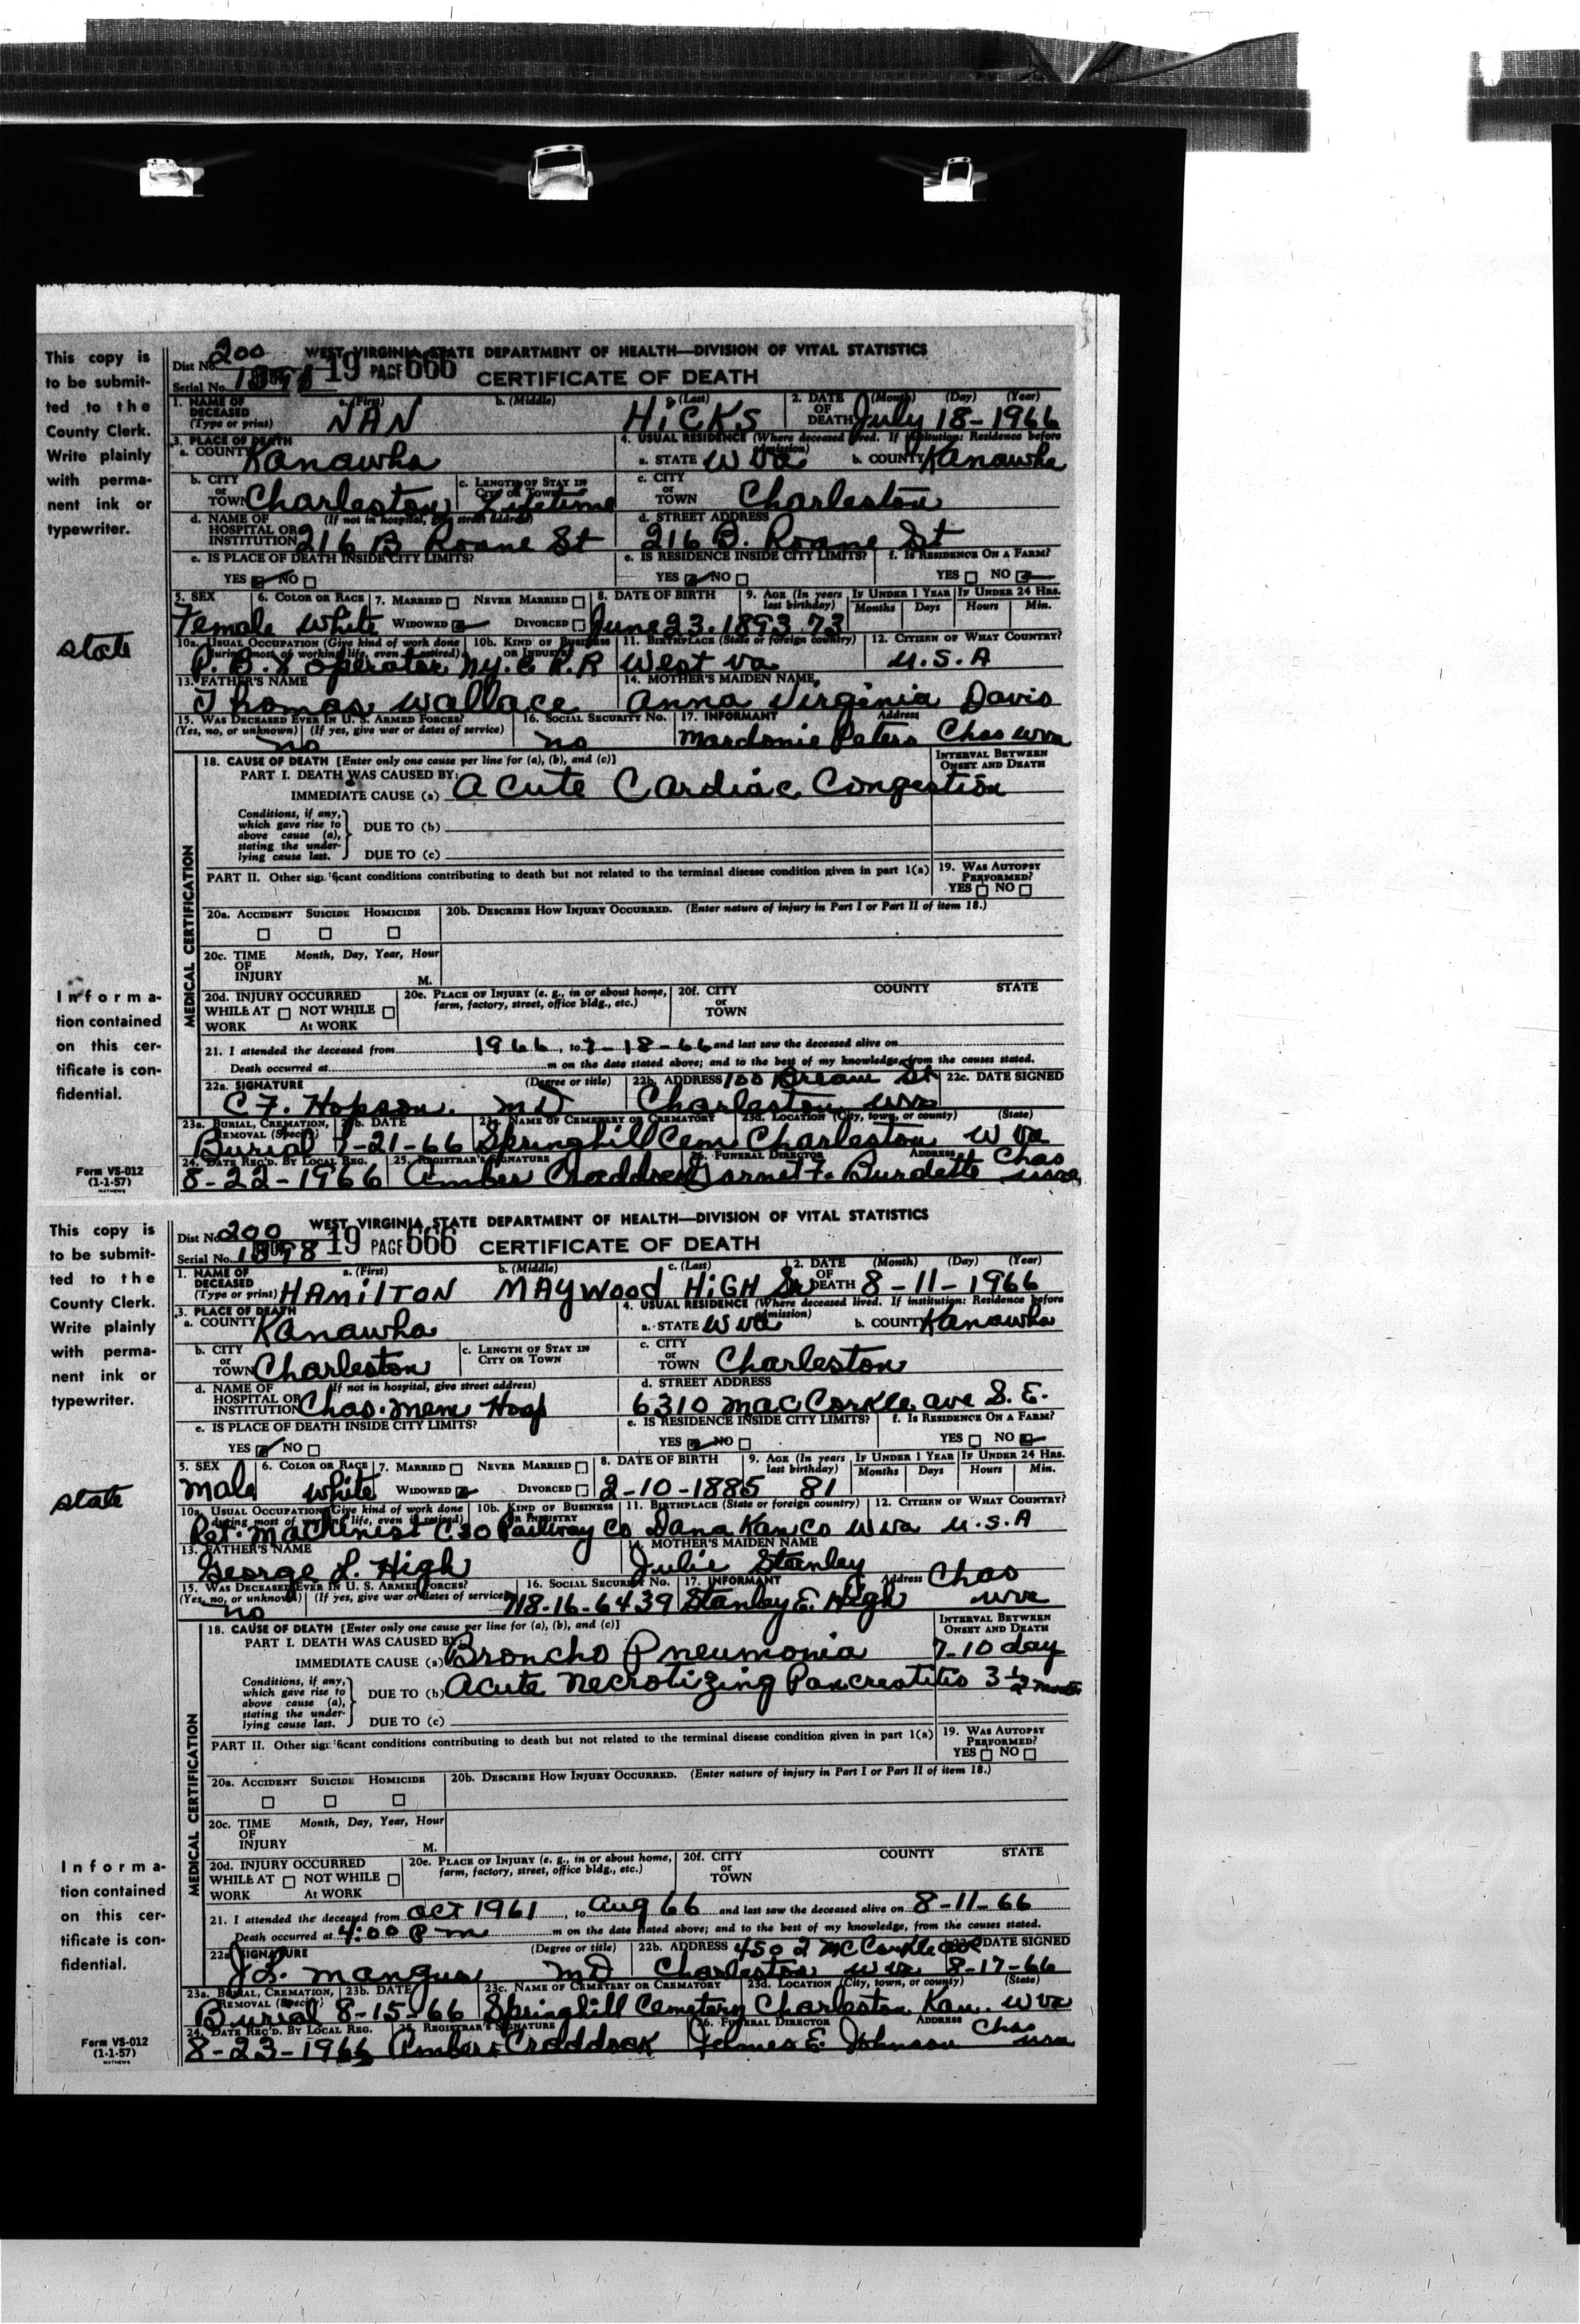 This copy is
to be submit-
ted to the
County Clerk.
Write plainly
with perma-
nent ink or
typewriter.
state
Informa-
tion contained
on this cer-
tificate is con-
fidential.
Form VS-012
(1-1-57)
MATHEWS
WEST VIRGINIA STATE DEPARTMENT OF HEALTH—DIVISION OF VITAL STATISTICS
Dist No. 200
Serial No. 19 PAGE 666 CERTIFICATE OF DEATH
1. NAME OF DECEASED (Type or print) a. (First) NAN b. (Middle) c. (Last) HICKS 2. DATE OF DEATH (Month) (Day) (Year) July 18-1966
3. PLACE OF DEATH 4. USUAL RESIDENCE (Where deceased lived. If institution: Residence before admission)
a. COUNTY Kanawha a. STATE W Va b. COUNTY Kanawha
b. CITY or TOWN Charleston c. LENGTH OF STAY IN CITY OR TOWN Lifetime c. CITY or TOWN Charleston
d. NAME OF HOSPITAL OR INSTITUTION (If not in hospital, give street address) 216 B Roane St d. STREET ADDRESS 216 B. Roane St
e. IS PLACE OF DEATH INSIDE CITY LIMITS? e. IS RESIDENCE INSIDE CITY LIMITS? f. IS RESIDENCE ON A FARM?
YES NO YES NO YES NO
5. SEX Female 6. COLOR OR RACE White 7. MARRIED NEVER MARRIED WIDOWED DIVORCED 8. DATE OF BIRTH June 23. 1893 9. AGE (In years last birthday) 73 IF UNDER 1 YEAR Months Days IF UNDER 24 HRS. Hours Min.
10a. USUAL OCCUPATION (Give kind of work done during most of working life, even if retired) P. B. X operator 10b. KIND OF BUSINESS OR INDUSTRY N.Y. C R.R 11. BIRTHPLACE (State or foreign country) West Va 12. CITIZEN OF WHAT COUNTRY? U.S.A
13. FATHER'S NAME Thomas Wallace 14. MOTHER'S MAIDEN NAME Anna Virginia Davis
15. WAS DECEASED EVER IN U. S. ARMED FORCES? (Yes, no, or unknown) (If yes, give war or dates of service) no 16. SOCIAL SECURITY No. no 17. INFORMANT Peters Address Chas WVa
18. CAUSE OF DEATH [Enter only one cause per line for (a), (b), and (c)] INTERVAL BETWEEN ONSET AND DEATH
PART I. DEATH WAS CAUSED BY:
IMMEDIATE CAUSE (a) Acute Cardiac Congestion
Conditions, if any, which gave rise to above cause (a), stating the under- lying cause last.
DUE TO (b)
DUE TO (c)
PART II. Other significant conditions contributing to death but not related to the terminal disease condition given in part 1(a) 19. WAS AUTOPSY PERFORMED? YES NO
MEDICAL CERTIFICATION
20a. ACCIDENT SUICIDE HOMICIDE 20b. DESCRIBE HOW INJURY OCCURRED. (Enter nature of injury in Part I or Part II of item 18.)
20c. TIME OF INJURY Month, Day, Year, Hour M.
20d. INJURY OCCURRED WHILE AT WORK NOT WHILE At WORK 20e. PLACE OF INJURY (e. g., in or about home, farm, factory, street, office bldg., etc.) 20f. CITY or TOWN COUNTY STATE
21. I attended the deceased from 1966, to 7-18-66 and last saw the deceased alive on
Death occurred at m on the date stated above; and to the best of my knowledge, from the causes stated.
22a. SIGNATURE C F. Hopson. (Degree or title) MD 22b. ADDRESS St Charleston WVa 22c. DATE SIGNED
23a. BURIAL, CREMATION, REMOVAL (Specify) Burial 23b. DATE 7-21-66 23c. NAME OF CEMETERY OR CREMATORY Springhill Cem 23d. LOCATION (City, town, or county) (State) Charleston W Va
24. DATE REC'D. BY LOCAL REG. 8-22-1966 25. REGISTRAR'S SIGNATURE Amber Craddock 26. FUNERAL DIRECTOR Garnet F. Burdette ADDRESS Chas WVa
This copy is
to be submit-
ted to the
County Clerk.
Write plainly
with perma-
nent ink or
typewriter.
state
Informa-
tion contained
on this cer-
tificate is con-
fidential.
Form VS-012
(1-1-57)
MATHEWS
WEST VIRGINIA STATE DEPARTMENT OF HEALTH—DIVISION OF VITAL STATISTICS
Dist No. 200
Serial No. 19 PAGE 666 CERTIFICATE OF DEATH
1. NAME OF DECEASED (Type or print) a. (First) HAMILTON b. (Middle) MAYWOOD c. (Last) HIGH Sr 2. DATE OF DEATH (Month) (Day) (Year) 8-11-1966
3. PLACE OF DEATH 4. USUAL RESIDENCE (Where deceased lived. If institution: Residence before admission)
a. COUNTY Kanawha a. STATE W Va b. COUNTY Kanawha
b. CITY or TOWN Charleston c. LENGTH OF STAY IN CITY OR TOWN c. CITY or TOWN Charleston
d. NAME OF HOSPITAL OR INSTITUTION (If not in hospital, give street address) Chas. Mem Hosp d. STREET ADDRESS 6310 MacCorkle Ave S. E.
e. IS PLACE OF DEATH INSIDE CITY LIMITS? e. IS RESIDENCE INSIDE CITY LIMITS? f. IS RESIDENCE ON A FARM?
YES NO YES NO YES NO
5. SEX Male 6. COLOR OR RACE White 7. MARRIED NEVER MARRIED WIDOWED DIVORCED 8. DATE OF BIRTH 2-10-1885 9. AGE (In years last birthday) 81 IF UNDER 1 YEAR Months Days IF UNDER 24 HRS. Hours Min.
10a. USUAL OCCUPATION (Give kind of work done during most of working life, even if retired) Ret. Machinist 10b. KIND OF BUSINESS OR INDUSTRY C&O Railway Co 11. BIRTHPLACE (State or foreign country) Dana Kan Co W Va 12. CITIZEN OF WHAT COUNTRY? U.S.A
13. FATHER'S NAME George L. High 14. MOTHER'S MAIDEN NAME Julie Stanley
15. WAS DECEASED EVER IN U. S. ARMED FORCES? (Yes, no, or unknown) (If yes, give war or dates of service) no 16. SOCIAL SECURITY No. 718-16-6439 17. INFORMANT Stanley E. High Address Chas WVa
18. CAUSE OF DEATH [Enter only one cause per line for (a), (b), and (c)] INTERVAL BETWEEN ONSET AND DEATH
PART I. DEATH WAS CAUSED BY:
IMMEDIATE CAUSE (a) Broncho Pneumonia 7-10 day
Conditions, if any, which gave rise to above cause (a), stating the under- lying cause last.
DUE TO (b) Acute Necrotizing Pancreatitis 3 1/2 months
DUE TO (c)
PART II. Other significant conditions contributing to death but not related to the terminal disease condition given in part 1(a) 19. WAS AUTOPSY PERFORMED? YES NO
MEDICAL CERTIFICATION
20a. ACCIDENT SUICIDE HOMICIDE 20b. DESCRIBE HOW INJURY OCCURRED. (Enter nature of injury in Part I or Part II of item 18.)
20c. TIME OF INJURY Month, Day, Year, Hour M.
20d. INJURY OCCURRED WHILE AT WORK NOT WHILE At WORK 20e. PLACE OF INJURY (e. g., in or about home, farm, factory, street, office bldg., etc.) 20f. CITY or TOWN COUNTY STATE
21. I attended the deceased from Oct 1961, to Aug 66 and last saw the deceased alive on 8-11-66
Death occurred at 4:00 P m m on the date stated above; and to the best of my knowledge, from the causes stated.
22a. SIGNATURE J.L. Mangus (Degree or title) MD 22b. ADDRESS 4502 McCorkle Ave Charleston W Va 22c. DATE SIGNED 8-17-66
23a. BURIAL, CREMATION, REMOVAL (Specify) Burial 23b. DATE 8-15-66 23c. NAME OF CEMETERY OR CREMATORY Springhill Cemetery 23d. LOCATION (City, town, or county) (State) Charleston Kan. W Va
24. DATE REC'D. BY LOCAL REG. 8-23-1966 25. REGISTRAR'S SIGNATURE Amber Craddock 26. FUNERAL DIRECTOR James E. Johnson ADDRESS Chas WVa